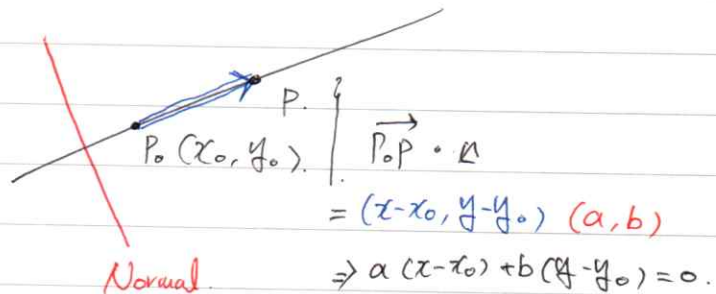 P.
P₀ (x₀, y₀).
P₀P · n
= (x-x₀, y-y₀) (a, b)
Normal.
⇒ a (x-x₀) + b(y-y₀) = 0.